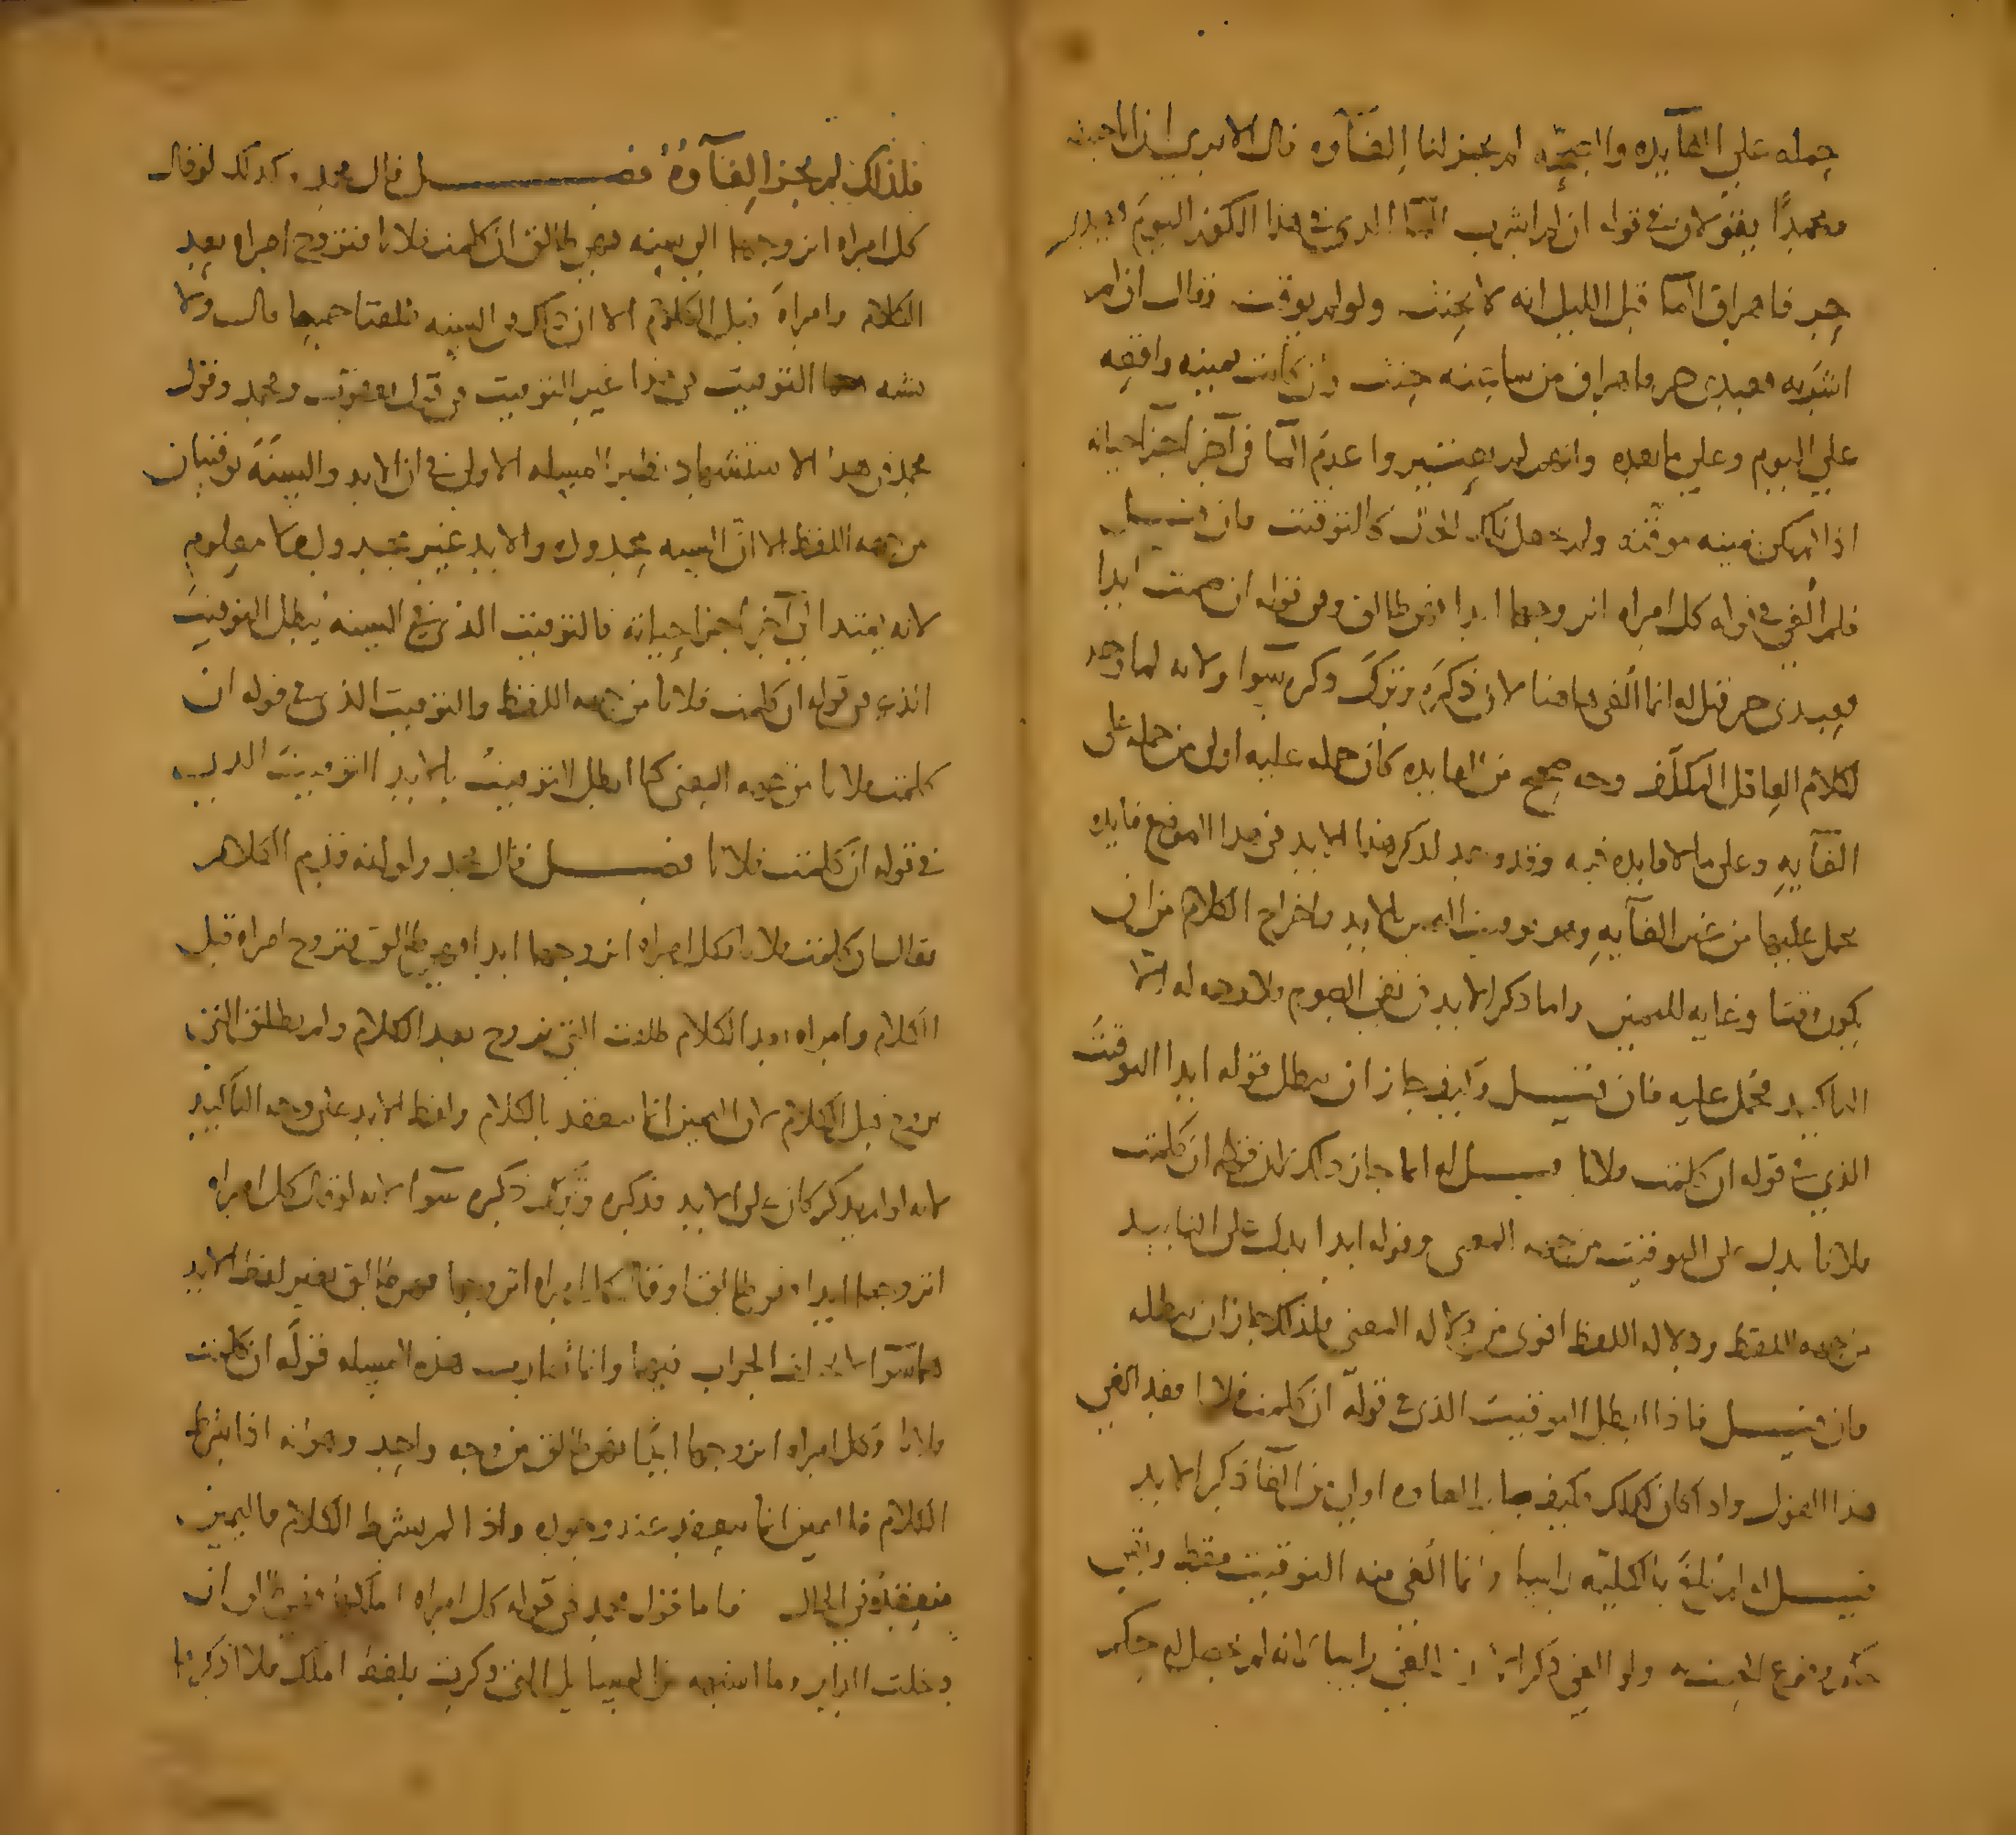 حمله على الفآيده واتجه لم يجز لنا إلغآوه قال الا يرى ان ابا حنيفه
ومحمدًا يقولان في قوله ان لم اشرب المآ الذي في هذا الكوز اليوم فعبدي
حر فاهراق المآ قبل الليل انه لا يحنث ولو لم يوقت وقال ان لم
اشربه فعبدي حر فاهراق من ساعته حنث وان كانت يمينه واقعه
على اليوم وعلى ما بعده وانه لم يعتبر وا عدم المآ في آخر اجزآ حياته
اذا لم يكن يمينه موقته ولم يجعل ذلك كالتوقيت فان قيل
فلم ألغي في قوله كل امراه اتزوجها ابدا فهي طالق وفي قوله ان صمت ابدا
فعبدي حر قيل له انما ألغي هاهنا لان ذكره وترك ذكره سوآ ولانه لما وجد
لكلام العاقل المكلف وجه صحيح من الفايده كان حمله عليه اولى من حمله على
الغآيه وعلى ما لا فايده فيه وقد وجد لذكر هذا الابد في هذا الموضع فايده
يحمل عليها من غير الغآيه وهو توقيت اليمين بالابد واخراج الكلام من ان
يكون وقتا وغايه لليمين واما ذكر الابد في نفي الصوم فلا وجه له الا
التاكيد فحمل عليه فان قيل وكيف جاز ان يبطل قوله ابدا التوقيت
الذي في قوله ان كلمت فلانا قيل له انما جاز ذلك لان قوله ان كلمت
فلانا يدل على التوقيت من جهه المعنى وقوله ابدا يدل على التابيد
من جهه اللفظ ودلاله اللفظ اقوى من دلاله المعنى فلذلك جاز ان يبطله
فان قيل فاذا ابطل التوقيت الذي في قوله ان كلمت فلانا فقد الغي
هذا القول واذا كان كذلك فكيف صار الغاوه اولى من الغآ ذكر الابد
قيل له لم يلغ بالكليه راسا وانما ألغي منه التوقيت فقط وبقي
حكمه في وقوع الحنث به ولو الغي ذكر الابد الغي راسا لانه لم يحصل له حكم
فلذلك لم يجز الغآوهُ فصل قال محمد وكذلك لو قال
كل امراه اتزوجها الى سنه فهي طالق ان كلمت فلانا فتزوج امراه بعد
الكلام وامراه قبل الكلام الا ان ذلك في السنه طلقتا جميعا قال ولا
يشبه هذا التوقيت في هذا غير التوقيت في قول يعقوب ومحمد وقول
محمد في هذا الاستشهاد نظير المسله الاولى في ان الابد والسنة توقيتان
من جهه اللفظ الا ان السنه محدوده والابد غير محدود لكنه معلوم
لانه يمتد الى آخر اجزا حياته فالتوقيت الذي في السنه يبطل التوقيت
الذي في قوله ان كلمت فلانا من جهه اللفظ والتوقيت الذي في قوله ان
كلمت فلانا من جهه المعنى كما ابطل التوقيت بالابد التوقيت الذي
في قوله ان كلمت فلانا فصل قال محمد ولو انه قدم الكلام
فقال ان كلمت فلانا فكل امراه اتزوجها ابدا فهي طالق فتزوج امراه قبل
الكلام وامراه بعد الكلام طلقت التي تزوج بعد الكلام ولم يطلق التي
تزوج قبل الكلام لان اليمين انما ينعقد بالكلام ولفظ الابد على وجه التاكيد
لانه لو لم يذكر كان على الابد فذكره وترك ذكره سوآ لانه لو قال كل امراه
اتزوجها ابدا فهي طالق او قال كل امراه اتزوجها فهي طالق بغير لفظ الابد
لما اختلف الجواب فيهما وانما فارقت هذه المسله قوله ان كلمت
فلانا وكل امراه اتزوجها ابدا فهي طالق من وجه واحد وهو انه اذا شرط
الكلام فاليمين انما ينعقد عند وجوده واذا لم يشرط الكلام فاليمين
منعقده في الحال فاما قول محمد في قوله كل امراه املكها فهي طالق ان
دخلت الدار وما اشبهه من المسايل التي ذكرت بلفظ املك فلا اذكرها